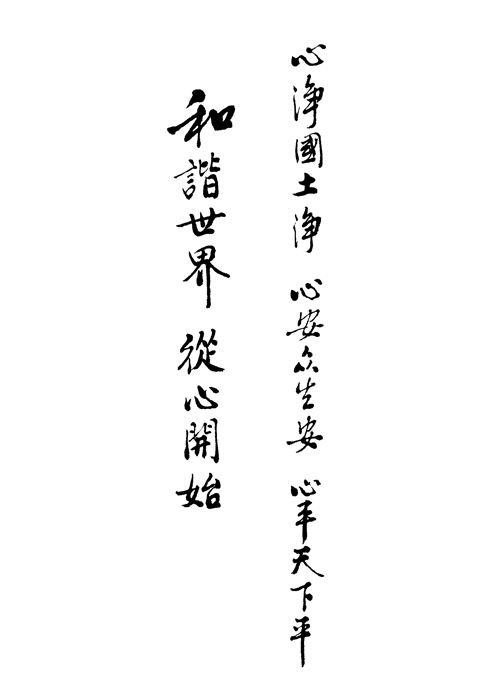 心淨國土淨 心安众生安 心平天下平
和諧世界 從心開始